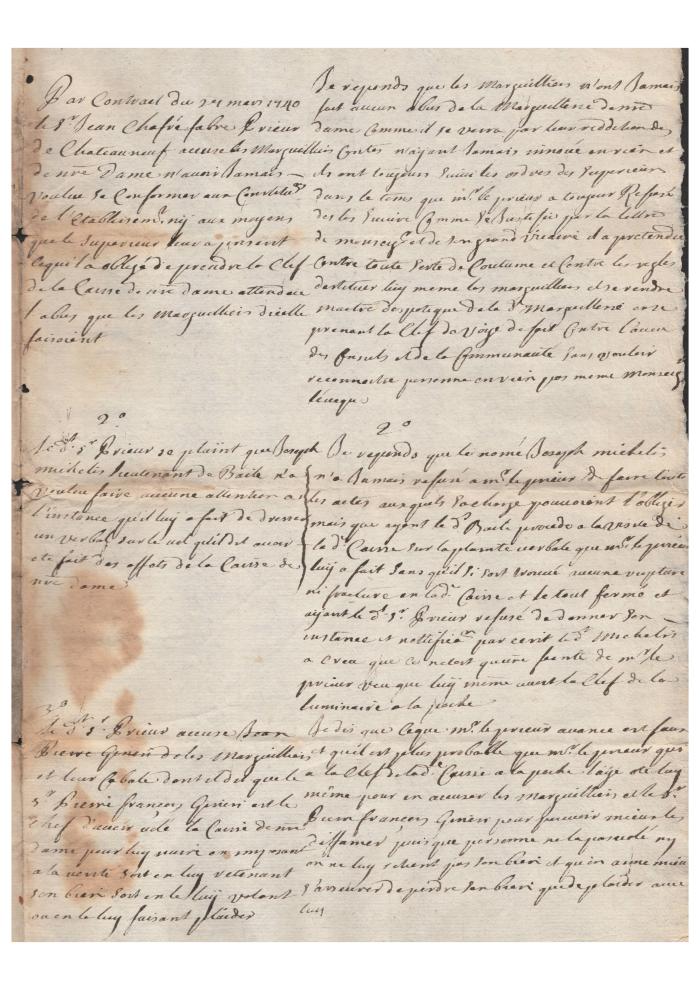 Par Contract du 21 mars 1740
le Sr Jean Chafré fabre Prieur
de Chateauneuf accuse les Marguilliers
de nre Dame n'avoir Jamais
voulu se Conformer aux Conditions
de l'Etablissemt ny aux moyens
que le Superieur leur a
ce qui l'a obligé de prendre la Clef
de la Caisse de nre dame attendu
l'abus que les Marguilliers d'icelle
faisoient
Je reponds que les Marguilliers n'ont Jamais
fait aucun abus de la Marguillerie de nre
dame Comme il se verra par leur reddition des
Contes n'ayant Jamais innové en rien et
ils ont toujours suivi les ordres des Superieurs
dans le tems que mr le prieur a toujour Refusé
des les suivre Comme se Justifie par la lettre
de monseigr et de son grand vicaire il a pretendu
Contre toute sorte de Coutume et Contre les regles
destituer luy meme les marguilliers et se rendre
maitre despotique de la d. Marguillerie en se
prenant la Clef de voye de fait Contre l'aveu
des Consuls et de la Communauté sans vouloir
reconnoitre personne en rien pas meme Monseig
l'éveque
2o
Le dt Sr Prieur se plaint que Joseph
michelis lieutenant de Baile n'a
voulu faire aucune attention a
l'instance qu'il luy a fait de dresser
un verbal sur le vol qu'il dit avoir
eté fait des effets de la Caisse de
nre dame
2o
Je reponds que le nomé Joseph michelis
n'a Jamais refusé a mr le prieur de faire touts
les actes auxquels sa charge pouvoient l'obliger
mais que ayant le dt Baile procedé a la visite de
la de Caisse sur la plainte verbale que mr le prieur
luy a fait sans qu'il si soit trouvé aucune rupture
ni fracture en lad. Caisse et le tout fermé et
ayant le dt Sr Prieur refusé de donner son
instance et nottiffier par ecrit le dt Michelis
a creu que ce n'etoit qu'une feinte de mr le
prieur veu que luy même avoit la Clef de la
luminaire a la poche
3o
Le dt Sr Prieur accuse Jean
Pierre Genieri des Marguilliers
et leur Cabale dont il dit que le
Sr Pierre françois Genieri est le
Chef d'avoir volé la Caisse de nre
dame pour luy nuire en imposant
a la verité soit en luy retenant
son bien soit en le luy volant
ou en le luy faisant plaider
Je dis que ce que mr le prieur avance est faux
et qu'il est plus probable que mr le prieur qui
a la Clef de lade Caisse a la poche l'aye volé luy
même pour en accuser les Marguilliers et le Sr
Pierre françois Genieri pour pouvoir mieux les
diffamer puisque personne ne la pas volé ny
on ne luy retient pas son bien et qu'on aime mieux
s'asseurer de perdre son bien que de plaider avec
luy